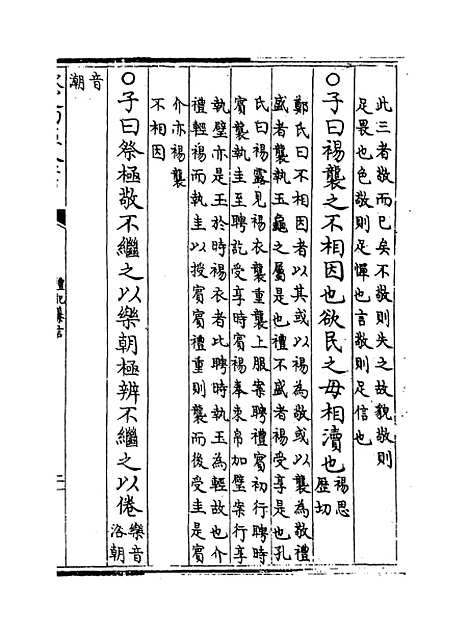 此三者敬而已矣不敬則失之故貌敬則
足畏也色敬則足憚也言敬則足信也
○子曰裼襲之不相因也欲民之毋相瀆也裼思歷切
鄭氏曰不相因者以其或以裼為敬或以襲為敬禮
盛者襲執玉龜之屬是也禮不盛者裼受享是也孔
氏曰裼露見裼衣襲重襲上服案聘禮賓初行聘時
賓襲執圭至聘訖受享時賓裼奉束帛加璧案行享
執璧亦是玉於時裼衣者比聘時執玉為輕故也介
禮輕裼而執圭以授賓賓禮重則襲而後受圭是賓
介亦裼襲
不相因
○子曰祭極敬不繼之以樂朝極辨不繼之以倦樂音洛朝
音
潮